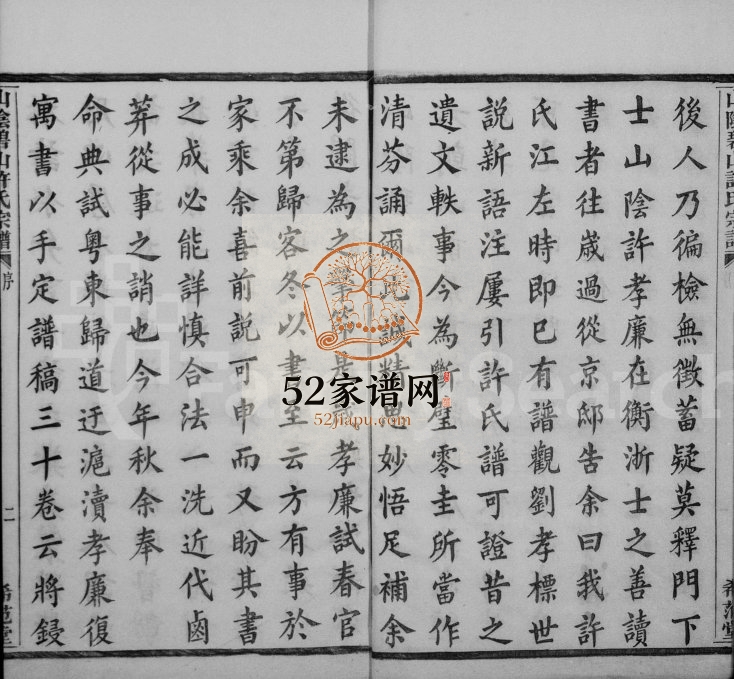 後人乃徧檢無徵蓄疑莫釋門下
士山陰許孝廉在衡浙士之善讀
書者往歲過從京邸告余曰我許
氏江左時即已有譜觀劉孝標世
說新語注屢引許氏譜可證昔之
遺文軼事今為斷璧零圭所當作
清芬誦爾此誠精思妙悟足補余
未逮為之擊節是歲孝廉試春官
不第歸客冬以書至云方有事於
家乘余喜前說可申而又盼其書
之成必能詳慎合法一洗近代鹵
莽從事之誚也今年秋余奉
命典試粵東歸道迂滬瀆孝廉復
寓書以手定譜稿三十卷云將鋟
山陰碧山許氏宗譜
序
二
希范堂
52家谱网
52jiapu.com